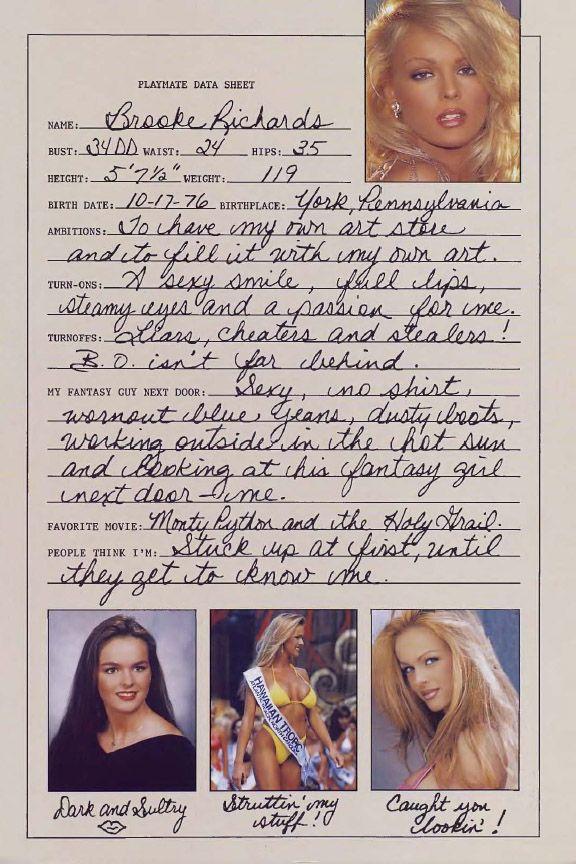 PLAYMATE DATA SHEET
NAME: Brooke Richards
BUST: 34DD WAIST: 24 HIPS: 35
HEIGHT: 5'7½" WEIGHT: 119
BIRTH DATE: 10-17-76 BIRTHPLACE: York, Pennsylvania
AMBITIONS: To have my own art store
and to fill it with my own art.
TURN-ONS: A sexy smile, full lips,
steamy eyes and a passion for me.
TURNOFFS: Liars, cheaters and stealers!
B.O. isn't far behind.
MY FANTASY GUY NEXT DOOR: Sexy, no shirt,
wornout blue jeans, dusty boots,
working outside in the hot sun
and looking at his fantasy girl
next door - me.
FAVORITE MOVIE: Monty Python and the Holy Grail.
PEOPLE THINK I'M: Stuck up at first, until
they get to know me.
HAWAIIAN TROPIC
Dark and Sultry
Struttin' my
stuff!
Caught you
lookin'!